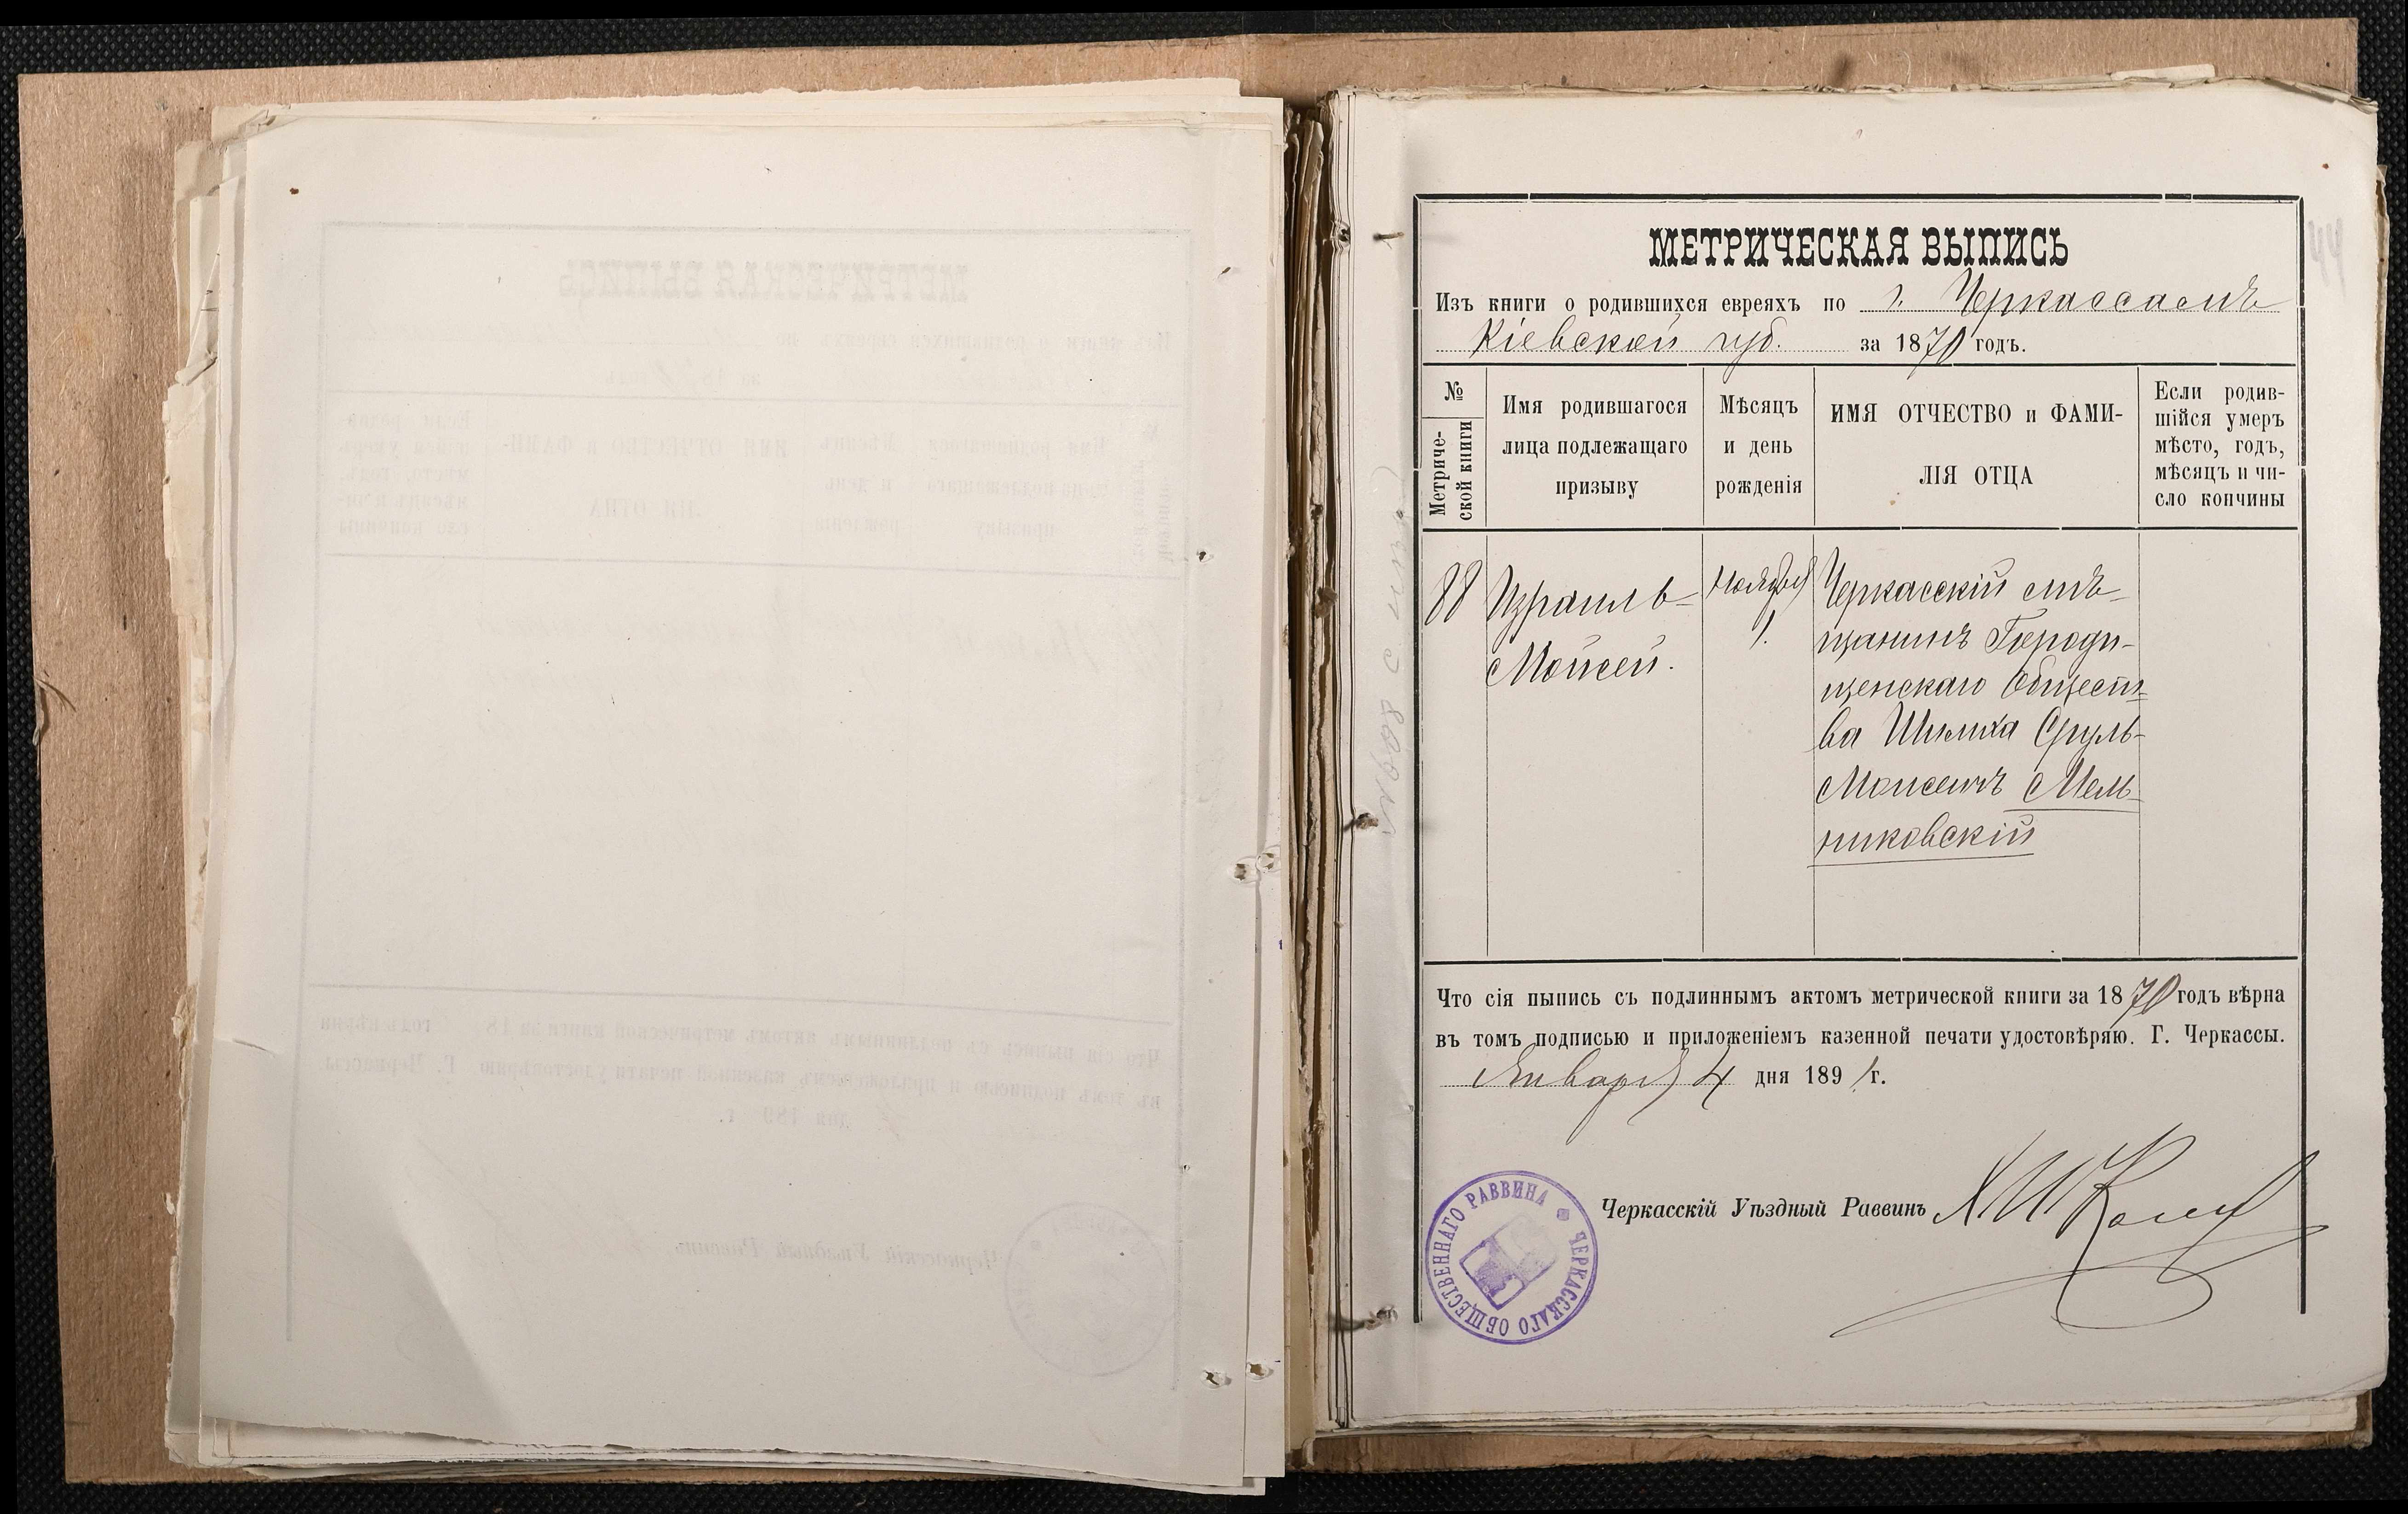 МЕТРИЧЕСКАЯ ВЫПИСЬ
Изъ книги о родившихся евреяхъ по г. Черкассамъ
Кіевской губ. за 1870 годъ.
№
Метриче-
ской книги
Имя родившагося
лица подлежащаго
призыву
Мѣсяцъ
и день
рожденія
ИМЯ ОТЧЕСТВО и ФАМИ-
ЛІЯ ОТЦА
Если родив-
шійся умеръ
мѣсто, годъ,
мѣсяцъ и чи-
сло кончины
88
Израиль-
Мойсей.
Ноября
1.
Черкасскій мѣ-
щанинъ Городи-
щенскаго Общест-
ва Шимха Сруль-
Моисеичъ Мель-
никовскій
Что сія пыпись съ подлиннымъ актомъ метрической книги за 1870 годъ вѣрна
въ томъ подписью и приложеніемъ казенной печати удостовѣряю. Г. Черкассы.
Января 4 дня 1891 г.
Черкасскій Уѣздный Раввинъ
ЧЕРКАССКАГО ОБЩЕСТВЕННАГО РАВВИНА
44